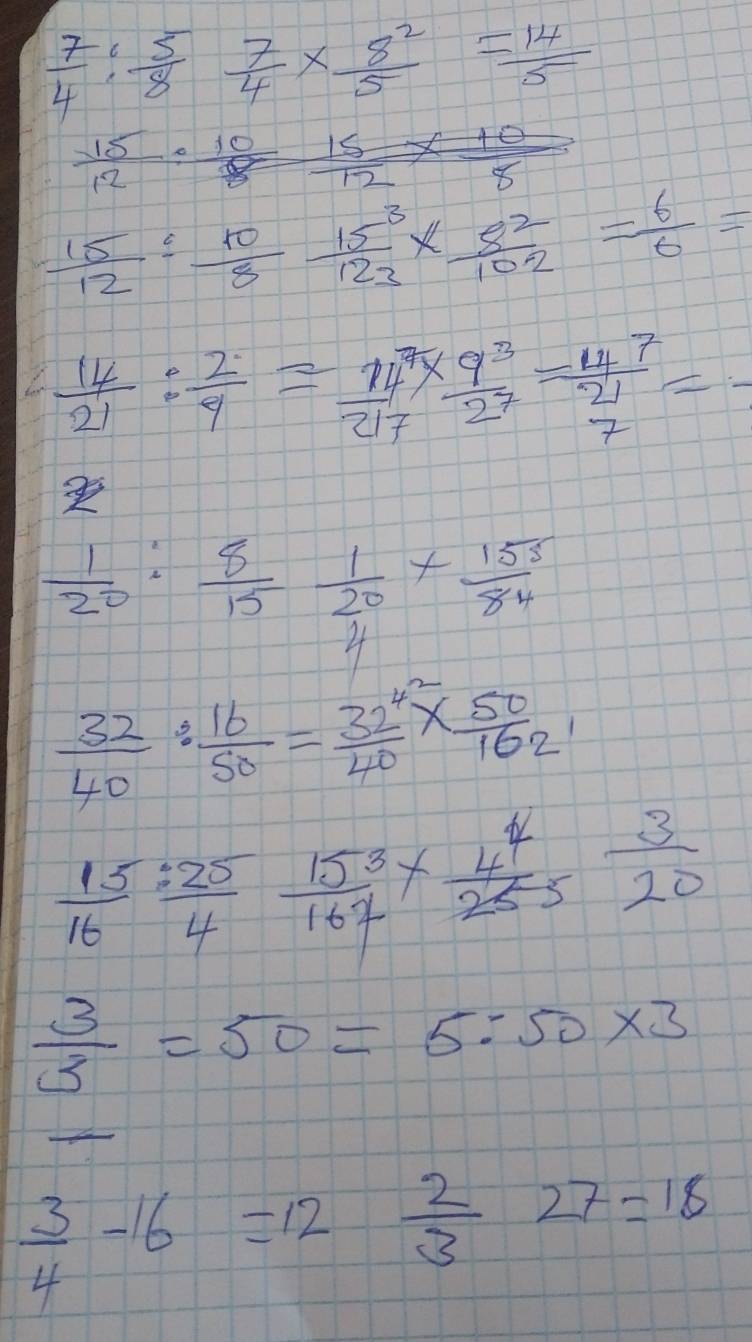 7/4 : 5/8 7/4 × 8²/5 = 14/5
15/12 : 10/8 15/12 × 10/8
15/12 : 10/8 15 3/12 3 × 8 2/10 2 = 6/6 =
14/21 : 2/9 = 14 7/21 7 × 9 3/2 7 = 14 7/21 7 =
1/20 : 8/15 1/20 4 × 15 5/8 4
32/40 : 16/50 = 32 4 2/40 × 50/16 2 1
15/16 : 25/4 15 3/16 7 × 4/25 5 3/20
3/3 = 50 = 5 : 50 × 3
3/4 - 16 = 12 2/3 27 = 18